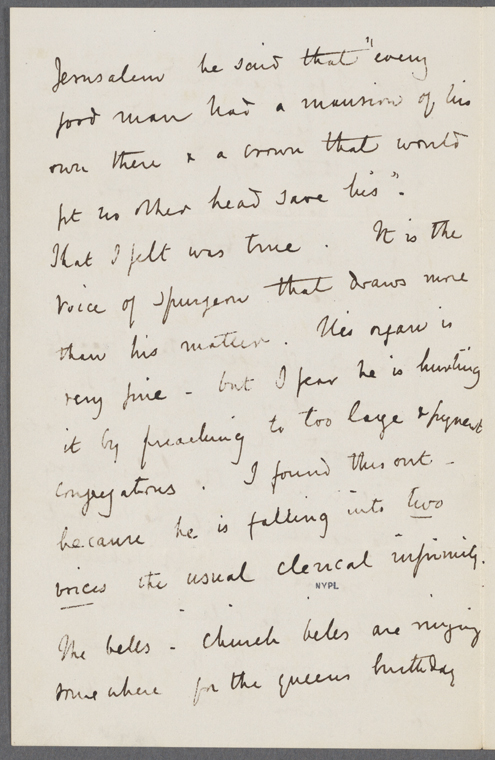 Jerusalem he said that "every
good man had a mansion of his
own there & a crown that would
fit no other head save his".
That I felt was true. It is the
voice of Spurgeon that draws more
than his matter. His organ is
very fine - but I fear he is hurting
it by preaching to too large & frequent
congregations. I found this out -
because he is falling into two
voices the usual clerical infirmity.
NYPL
The bells - church bells are ringing
somewhere for the queens birthday